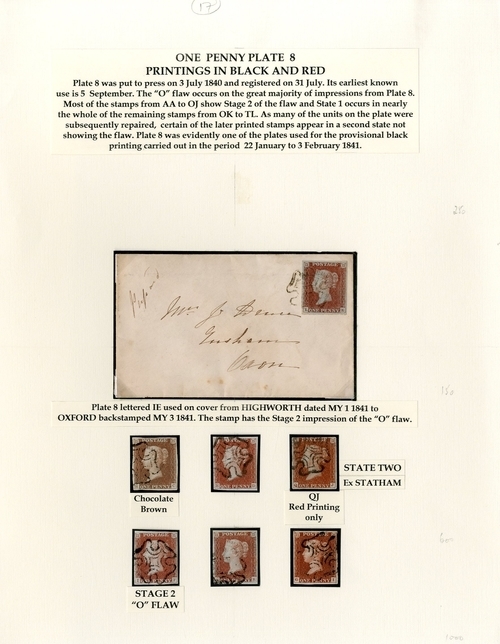 17
ONE PENNY PLATE 8
PRINTINGS IN BLACK AND RED
Plate 8 was put to press on 3 July 1840 and registered on 31 July. Its earliest known
use is 5 September. The "O" flaw occurs on the great majority of impressions from Plate 8.
Most of the stamps from AA to OJ show Stage 2 of the flaw and State 1 occurs in nearly
the whole of the remaining stamps from OK to TL. As many of the units on the plate were
subsequently repaired, certain of the later printed stamps appear in a second state not
showing the flaw. Plate 8 was evidently one of the plates used for the provisional black
printing carried out in the period 22 January to 3 February 1841.
POSTAGE
ONE PENNY
Ensham
Oxon
Plate 8 lettered IE used on cover from HIGHWORTH dated MY 1 1841 to
OXFORD backstamped MY 3 1841. The stamp has the Stage 2 impression of the "O" flaw.
STATE TWO
Ex STATHAM
Chocolate
Brown
QJ
Red Printing
only
STAGE 2
"O" FLAW